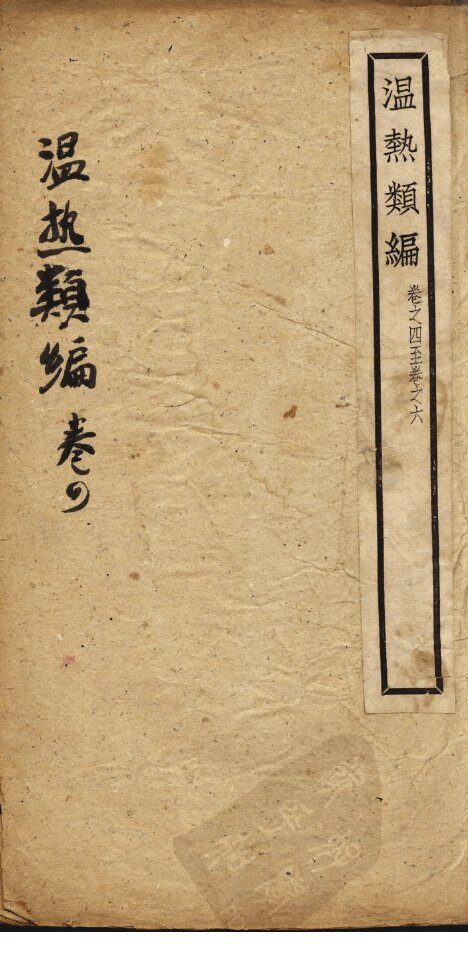 温熱類編
卷之四至卷之六
温热類編
卷四